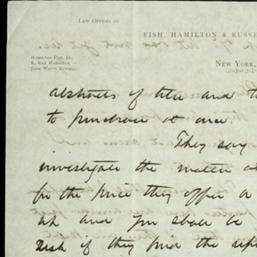 LAW OFFICES OF
FISH, HAMILTON & RUSSE
HAMILTON FISH, JR.
R. RAY HAMILTON,
JOHN WATTS RUSSELL.
NEW YORK,
abstracts of title and t
to purchase at once.
They say
investigate the matter a
for the price they offer a
it and you shall be
risk if they find the